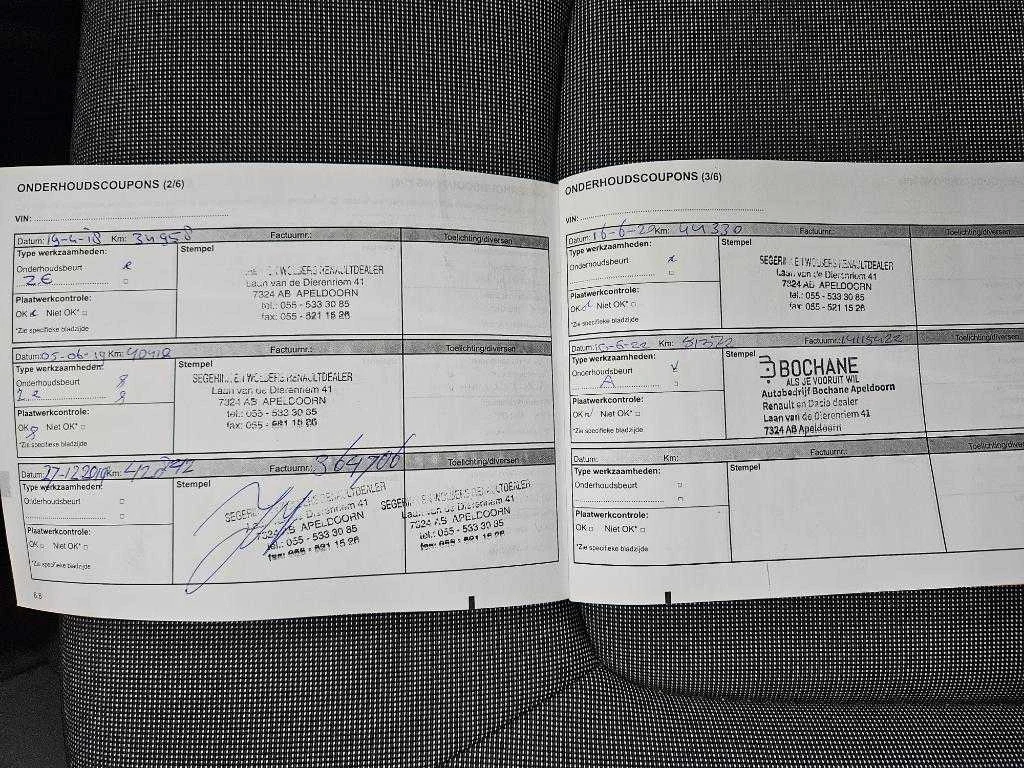 ONDERHOUDSCOUPONS (2/6)
VIN:
Datum: 19-4-18 Km: 34958 Factuurnr.: Toelichting/diversen
Type werkzaamheden: Stempel
Onderhoudsbeurt
Plaatwerkcontrole:
OK Niet OK*
*Zie specifieke bladzijde
RENAULTDEALER
Laan van de Dierenriem 41
7324 AB APELDOORN
tel.: 055 - 533 30 85
fax: 055 - 521 15 26
Datum: 05-06-19 Km: 40418 Factuurnr.: Toelichting/diversen
Type werkzaamheden: Stempel
Onderhoudsbeurt
Plaatwerkcontrole:
OK Niet OK*
*Zie specifieke bladzijde
RENAULTDEALER
Laan van de Dierenriem 41
7324 AB APELDOORN
tel.: 055 - 533 30 85
fax: 055 - 521 15 26
Datum: 27-12-2019 Km: 42742 Factuurnr.: 364706 Toelichting/diversen
Type werkzaamheden: Stempel
Onderhoudsbeurt
Plaatwerkcontrole:
OK Niet OK*
*Zie specifieke bladzijde
APELDOORN
tel.: 055 - 533 30 85
fax: 055 - 521 15 26
RENAULTDEALER
Laan van de Dierenriem 41
7324 AB APELDOORN
tel.: 055 - 533 30 85
fax: 055 - 521 15 26
ONDERHOUDSCOUPONS (3/6)
VIN:
Datum: 16-6-20 Km: 44330 Factuurnr.: Toelichting/diversen
Type werkzaamheden: Stempel
Onderhoudsbeurt
Plaatwerkcontrole:
OK Niet OK*
*Zie specifieke bladzijde
RENAULTDEALER
Laan van de Dierenriem 41
7324 AB APELDOORN
tel.: 055 - 533 30 85
fax: 055 - 521 15 26
Datum: Km: Factuurnr.: Toelichting/diversen
Type werkzaamheden: Stempel
Onderhoudsbeurt
A
Plaatwerkcontrole:
OK Niet OK*
*Zie specifieke bladzijde
BOCHANE
ALS JE VOORUIT WIL
Autobedrijf Bochane Apeldoorn
Renault en Dacia dealer
Laan van de Dierenriem 41
7324 AB Apeldoorn
Datum: Km: Factuurnr.: Toelichting/diversen
Type werkzaamheden: Stempel
Onderhoudsbeurt
Plaatwerkcontrole:
OK Niet OK*
*Zie specifieke bladzijde